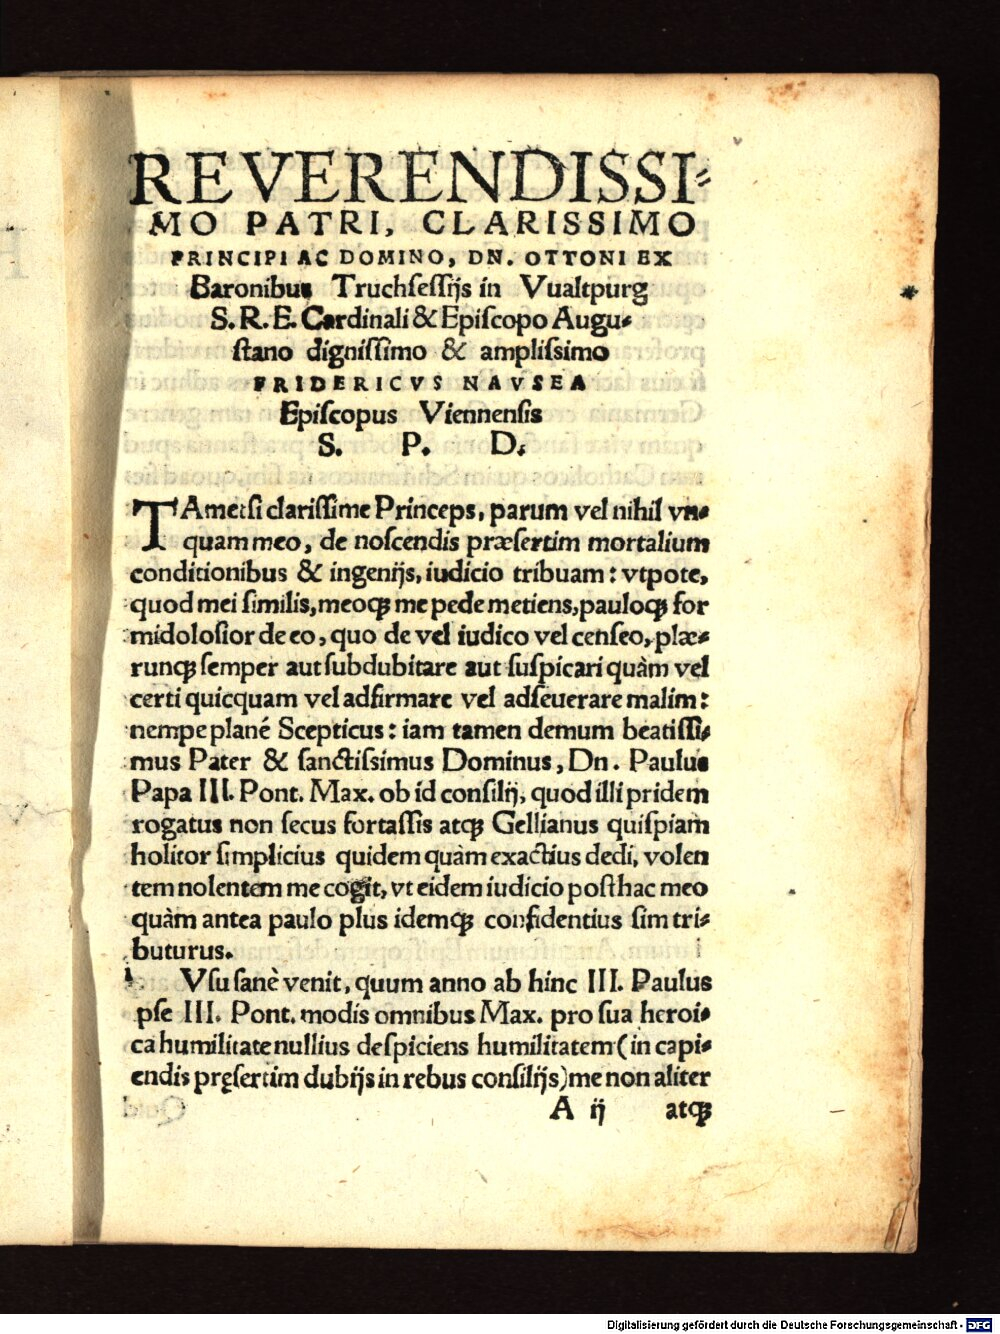 REVERENDISSI⸗
MO PATRI, CLARISSIMO
PRINCIPI AC DOMINO, DN. OTTONI EX
Baronibus Truchſeſſijs in Vualtpurg
S. R. E. Cardinali & Epiſcopo Augu⸗
ſtano digniſſimo & ampliſsimo
FRIDERICVS NAVSEA
Epiſcopus Viennenſis
S. P. D.
TAmetſi clariſſime Princeps, parum vel nihil vn⸗
quam meo, de noſcendis præſertim mortalium
conditionibus & ingenijs, iudicio tribuam: vtpote,
quod mei ſimilis, meoq; me pede metiens, pauloq; for
midoloſior de eo, quo de vel iudico vel cenſeo, plæ⸗
runq; ſemper aut ſubdubitare aut ſuſpicari quàm vel
certi quicquam vel adfirmare vel adſeuerare malim:
nempe plané Scepticus: iam tamen demum beatiſſi⸗
mus Pater & ſanctiſsimus Dominus, Dn. Paulus
Papa III. Pont. Max. ob id conſilij, quod illi pridem
rogatus non ſecus fortaſſis atq; Gellianus quiſpiam
holitor ſimplicius quidem quàm exactius dedi, volen
tem nolentem me cogit, vt eidem iudicio poſthac meo
quàm antea paulo plus idemq; confidentius ſim tri⸗
buturus.
Vſu ſanè venit, quum anno ab hinc III. Paulus
ipſe III. Pont. modis omnibus Max. pro ſua heroi⸗
ca humilitate nullius deſpiciens humilitatem (in capi⸗
endis pręſertim dubijs in rebus conſilijs) me non aliter
A ij atq;
Digitalisierung gefördert durch die Deutsche Forschungsgemeinschaft - DFG